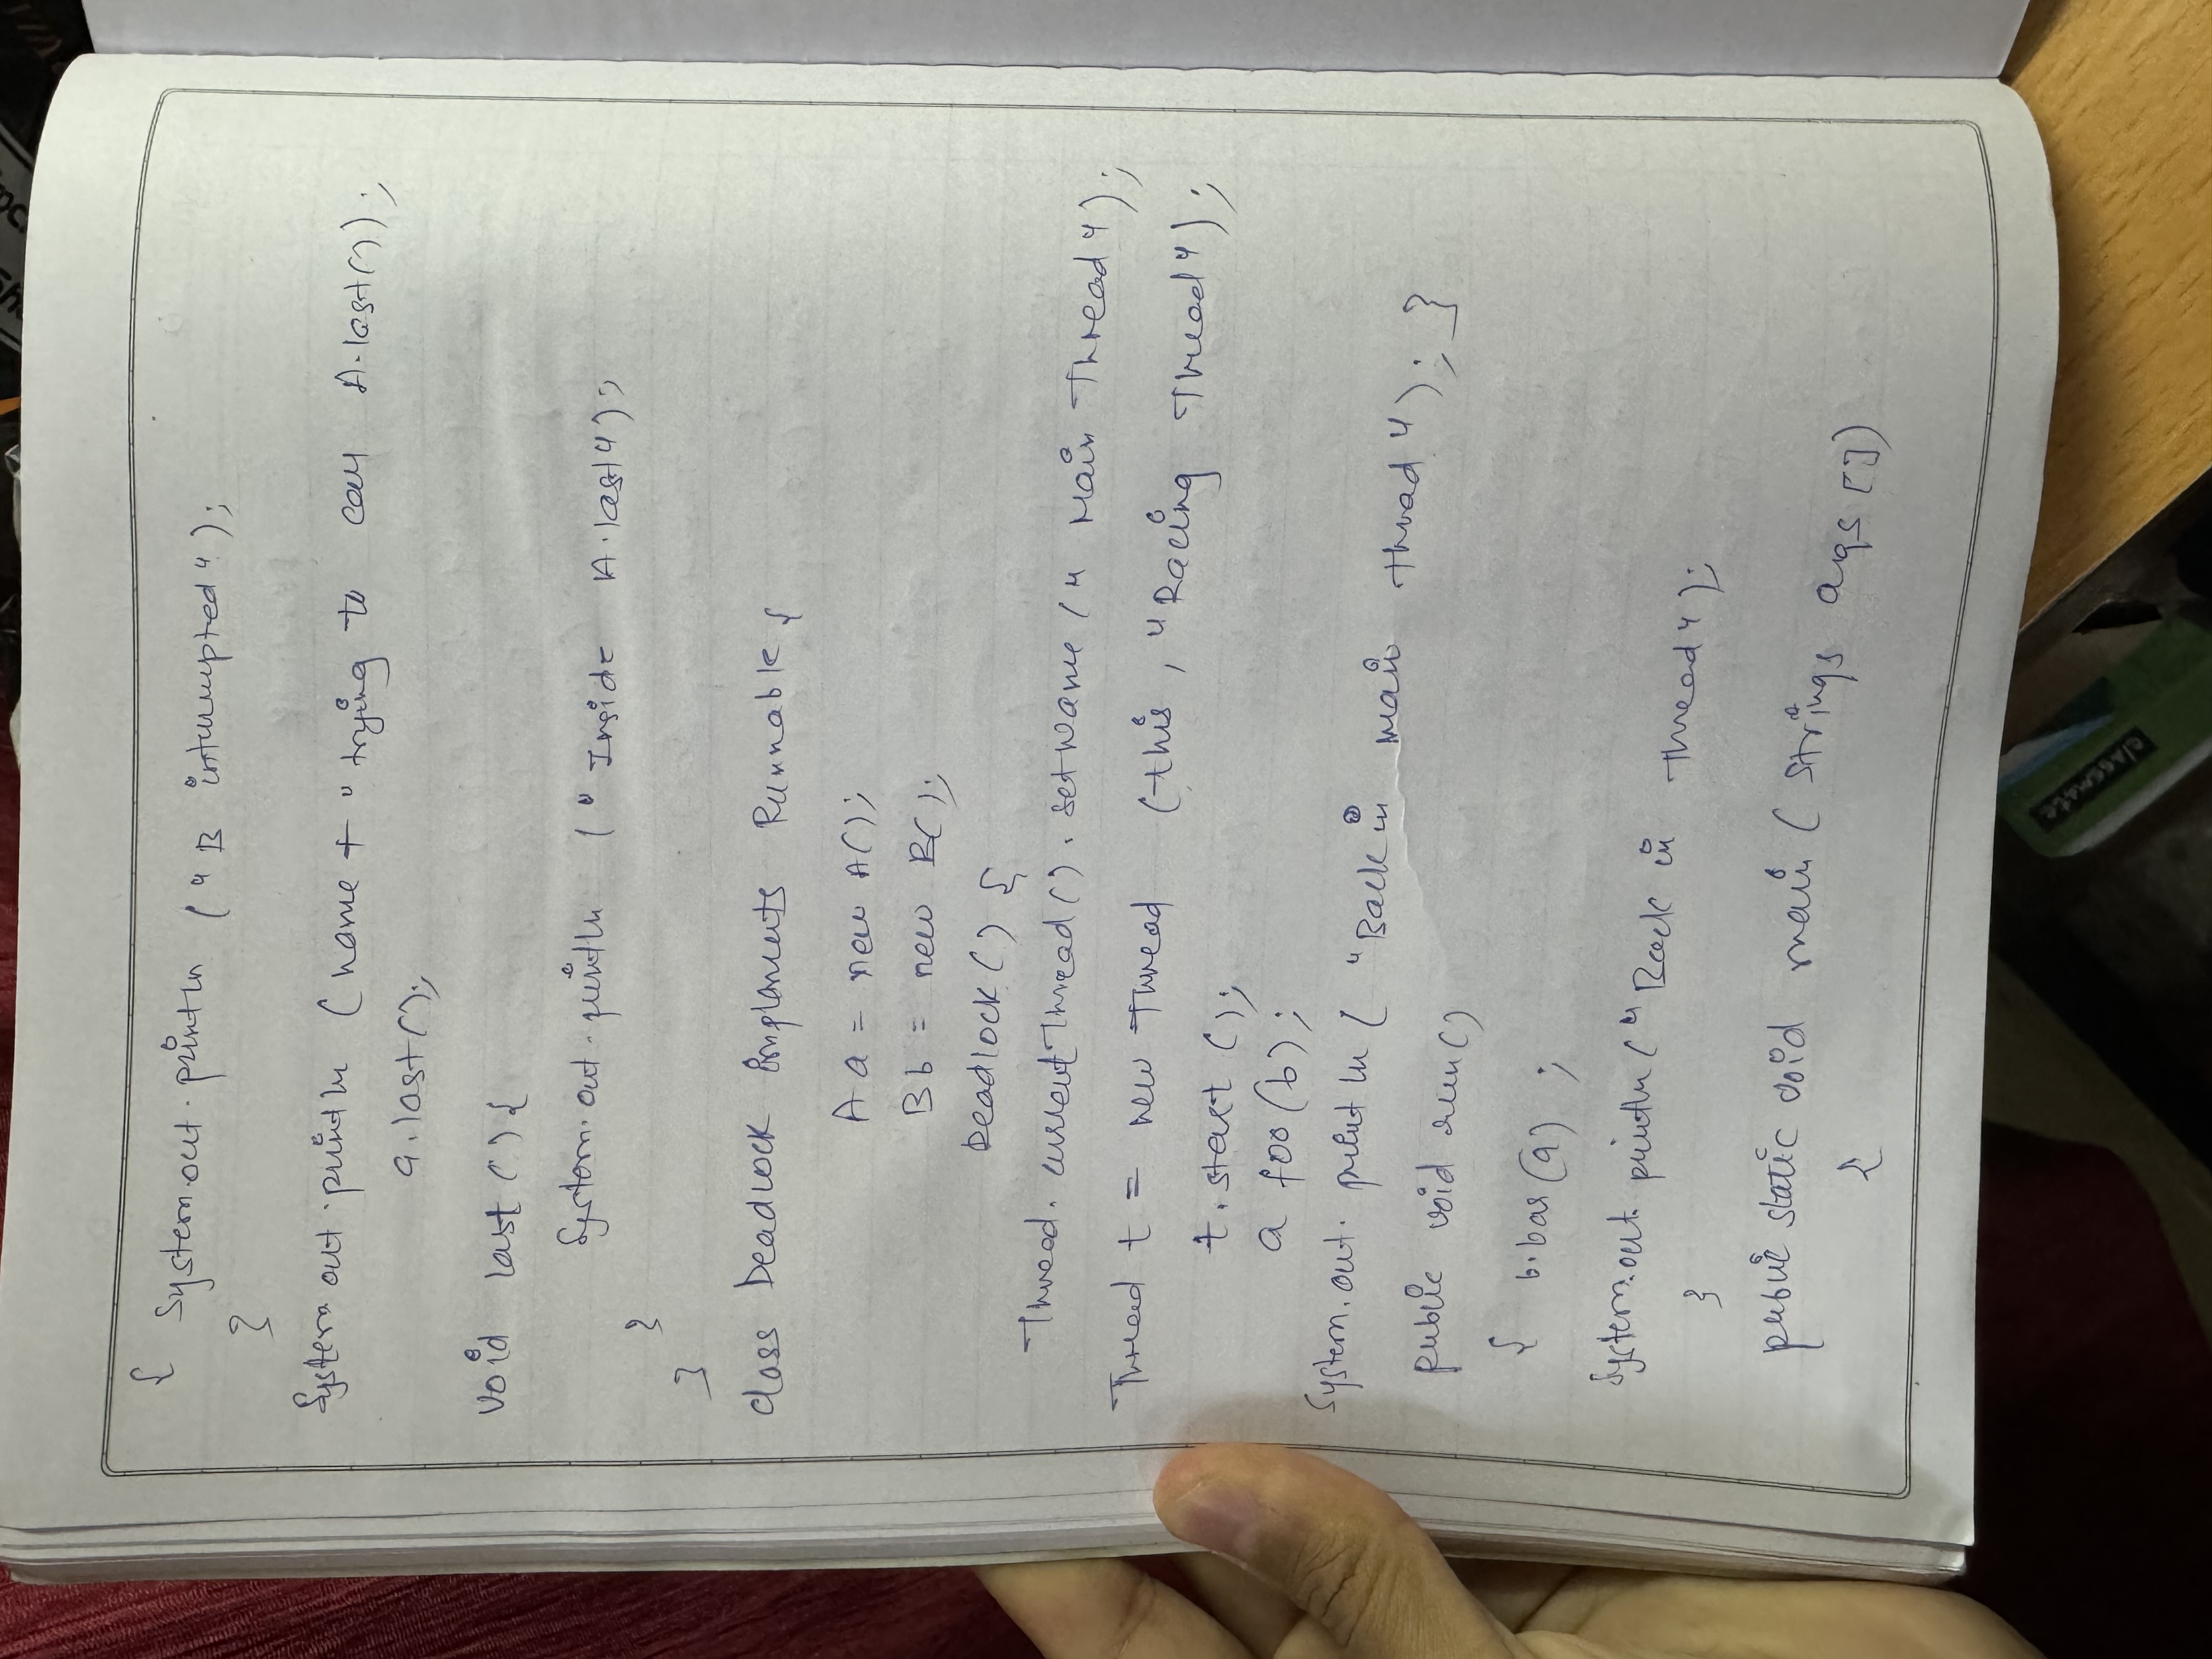 { System.out.println ("B interrupted");
}
System out.println (name + "trying to call A.last());
a.last();
void last () {
System.out.println ("Inside A.last");
}
}
class Deadlock implements Runnable {
A a = new A();
B b = new B();
Deadlock () {
Thread. currentThread(). setName (" Main Thread");
Thread t = new Thread (this, "Racing Thread");
t. start ();
a foo(b);
System.out. println ( "Back in main thread"); }
public void run()
{ b.bar(a) ;
System.out. println ("Back in Thread");
}
public static void main ( Strings args [])
{
classmate